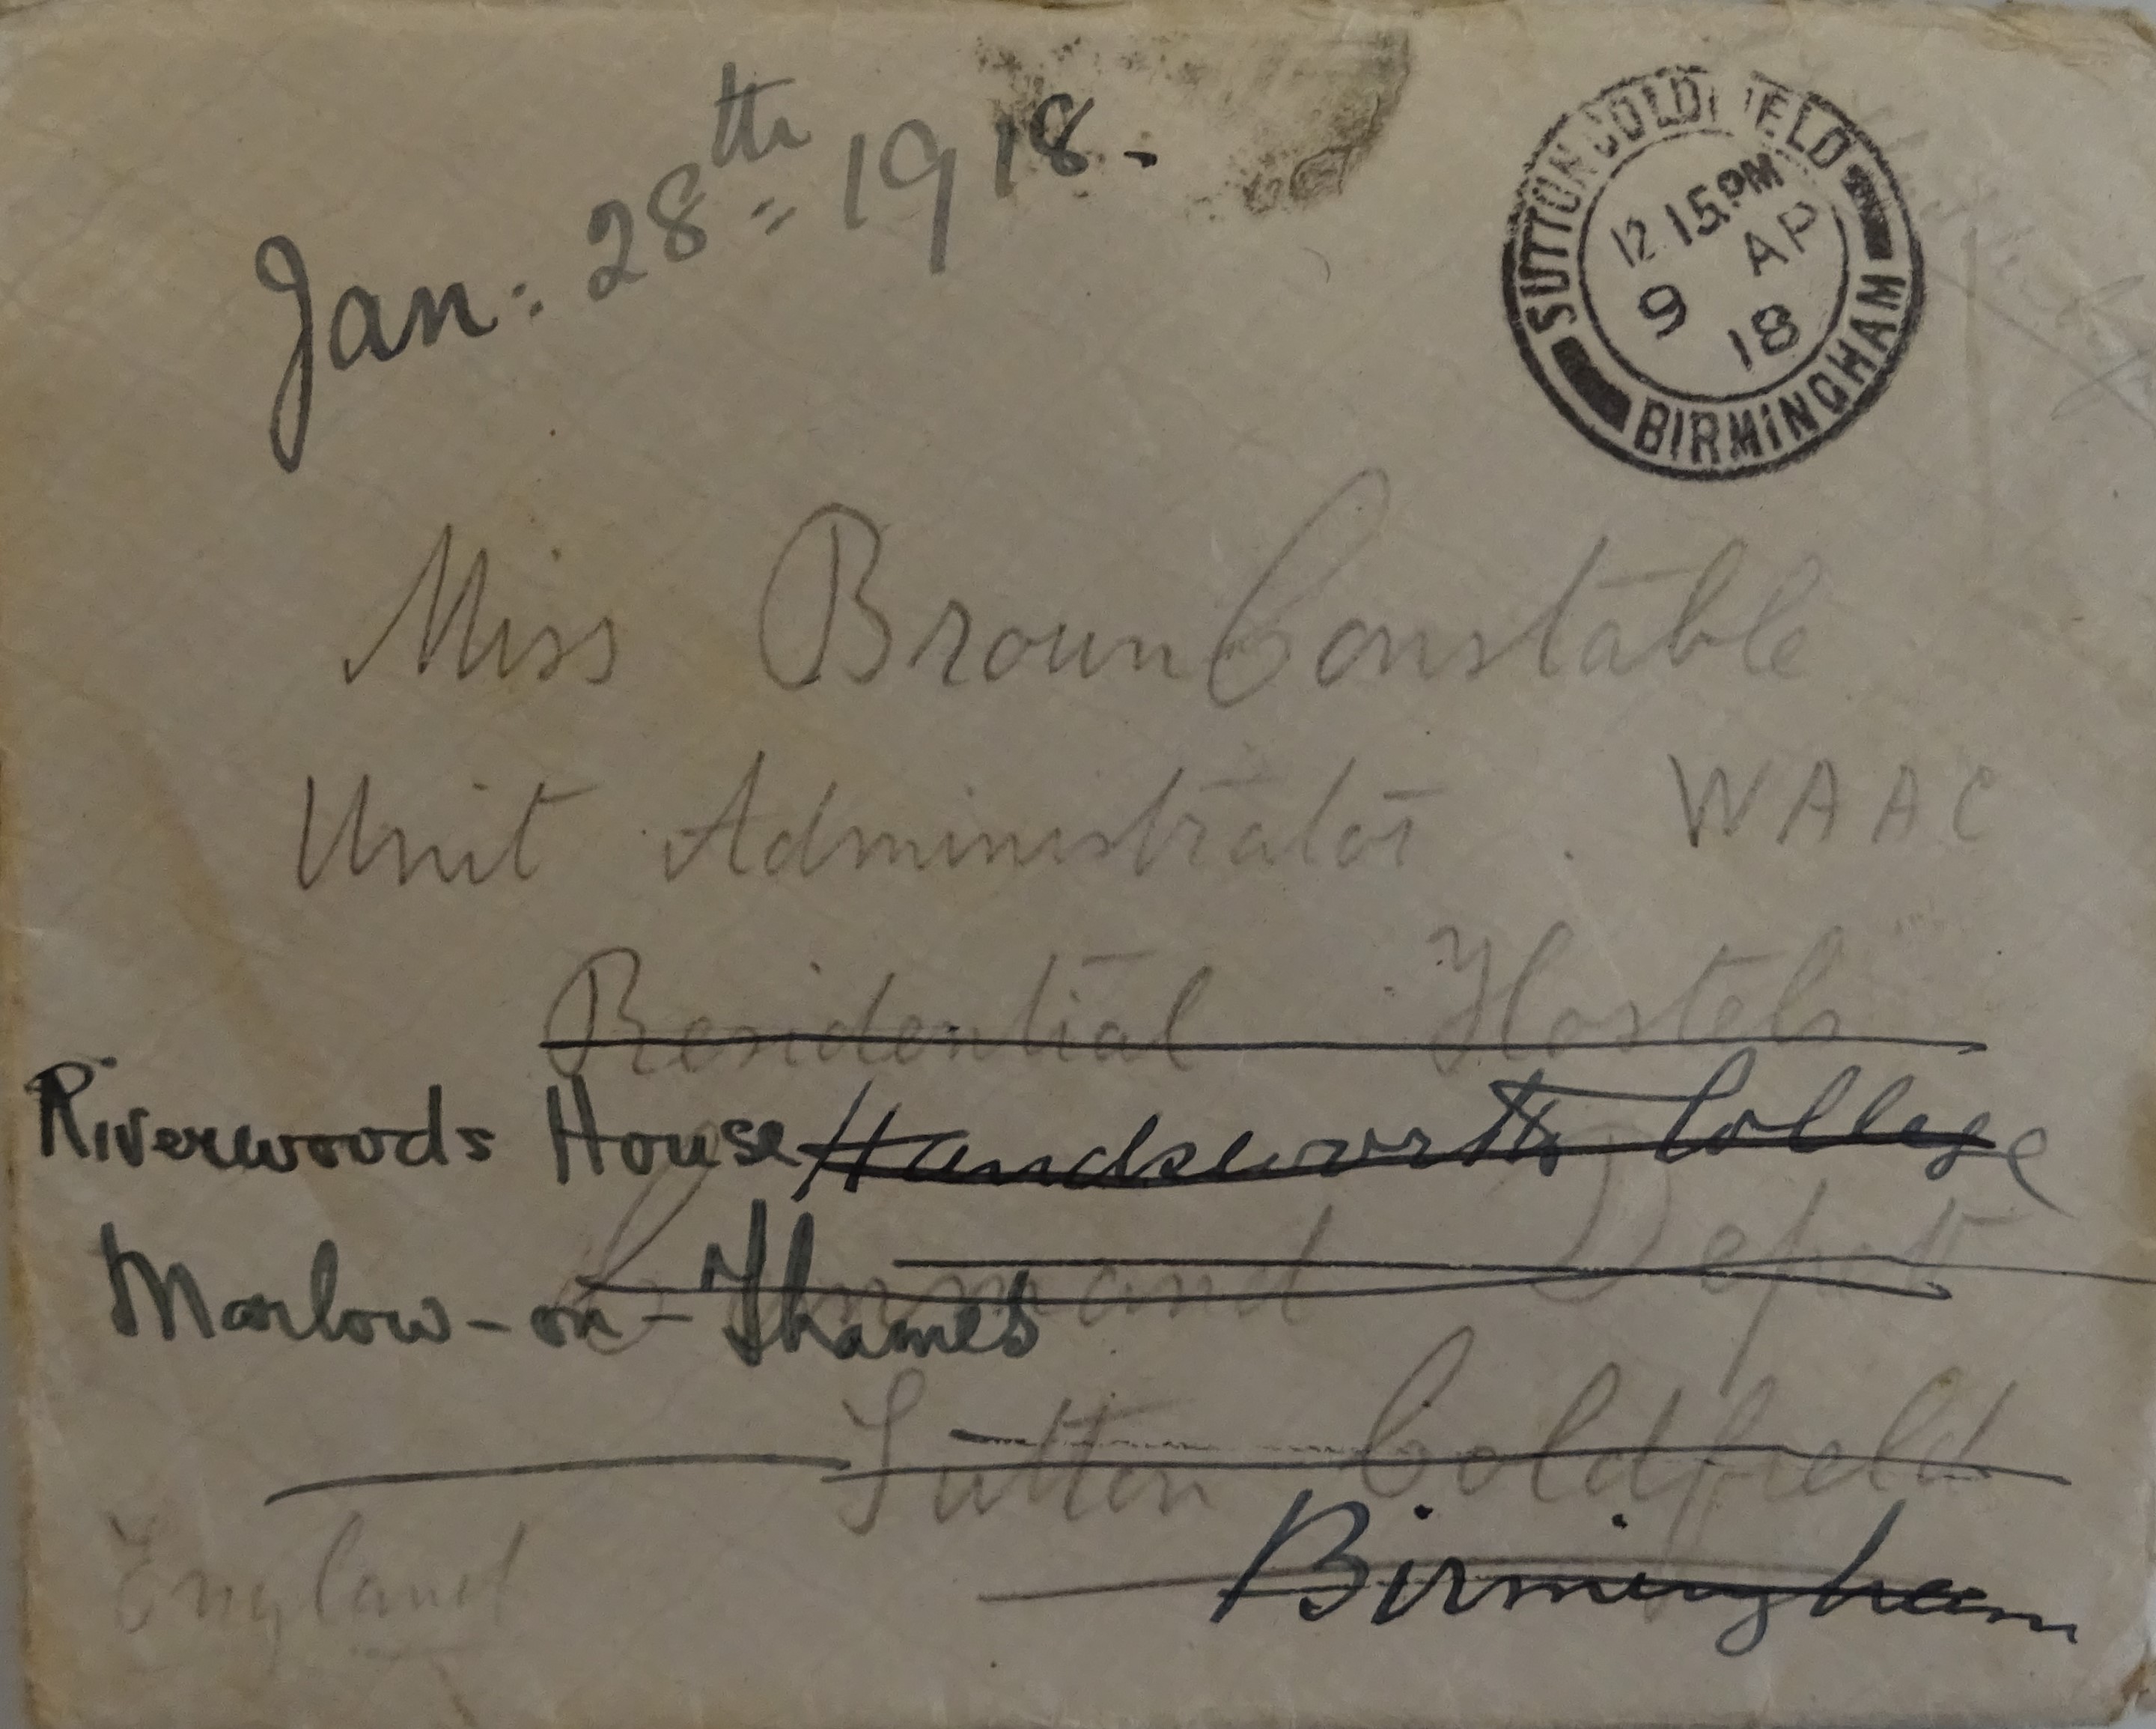 Jan: 28th = 1918.
SUTTON COLDFIELD
12 15 PM
9 AP
18
BIRMINGHAM
Miss Brown Constable
Unit Administrator. WAAC
Residential Hostels
Riverwoods House Handsworth College
Command Depot
Marlow-on-Thames
Sutton Coldfield
England
Birmingham